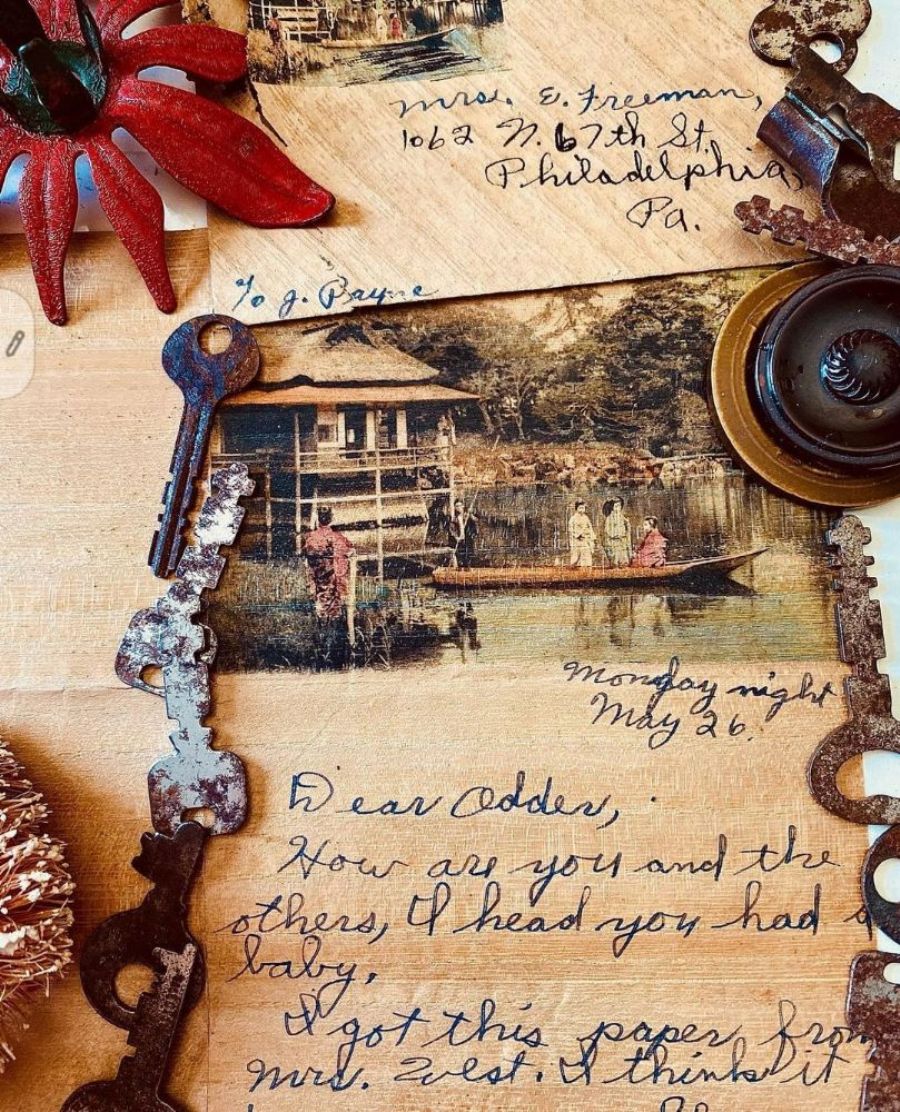 Mrs. E. Freeman,
1062 N. 67th St.
Philadelphia,
Pa.
% J. Payne
Monday night
May 26.
Dear Odder,
How are you and the
others, I head you had a
baby.
I got this paper from
Mrs. West. I think it